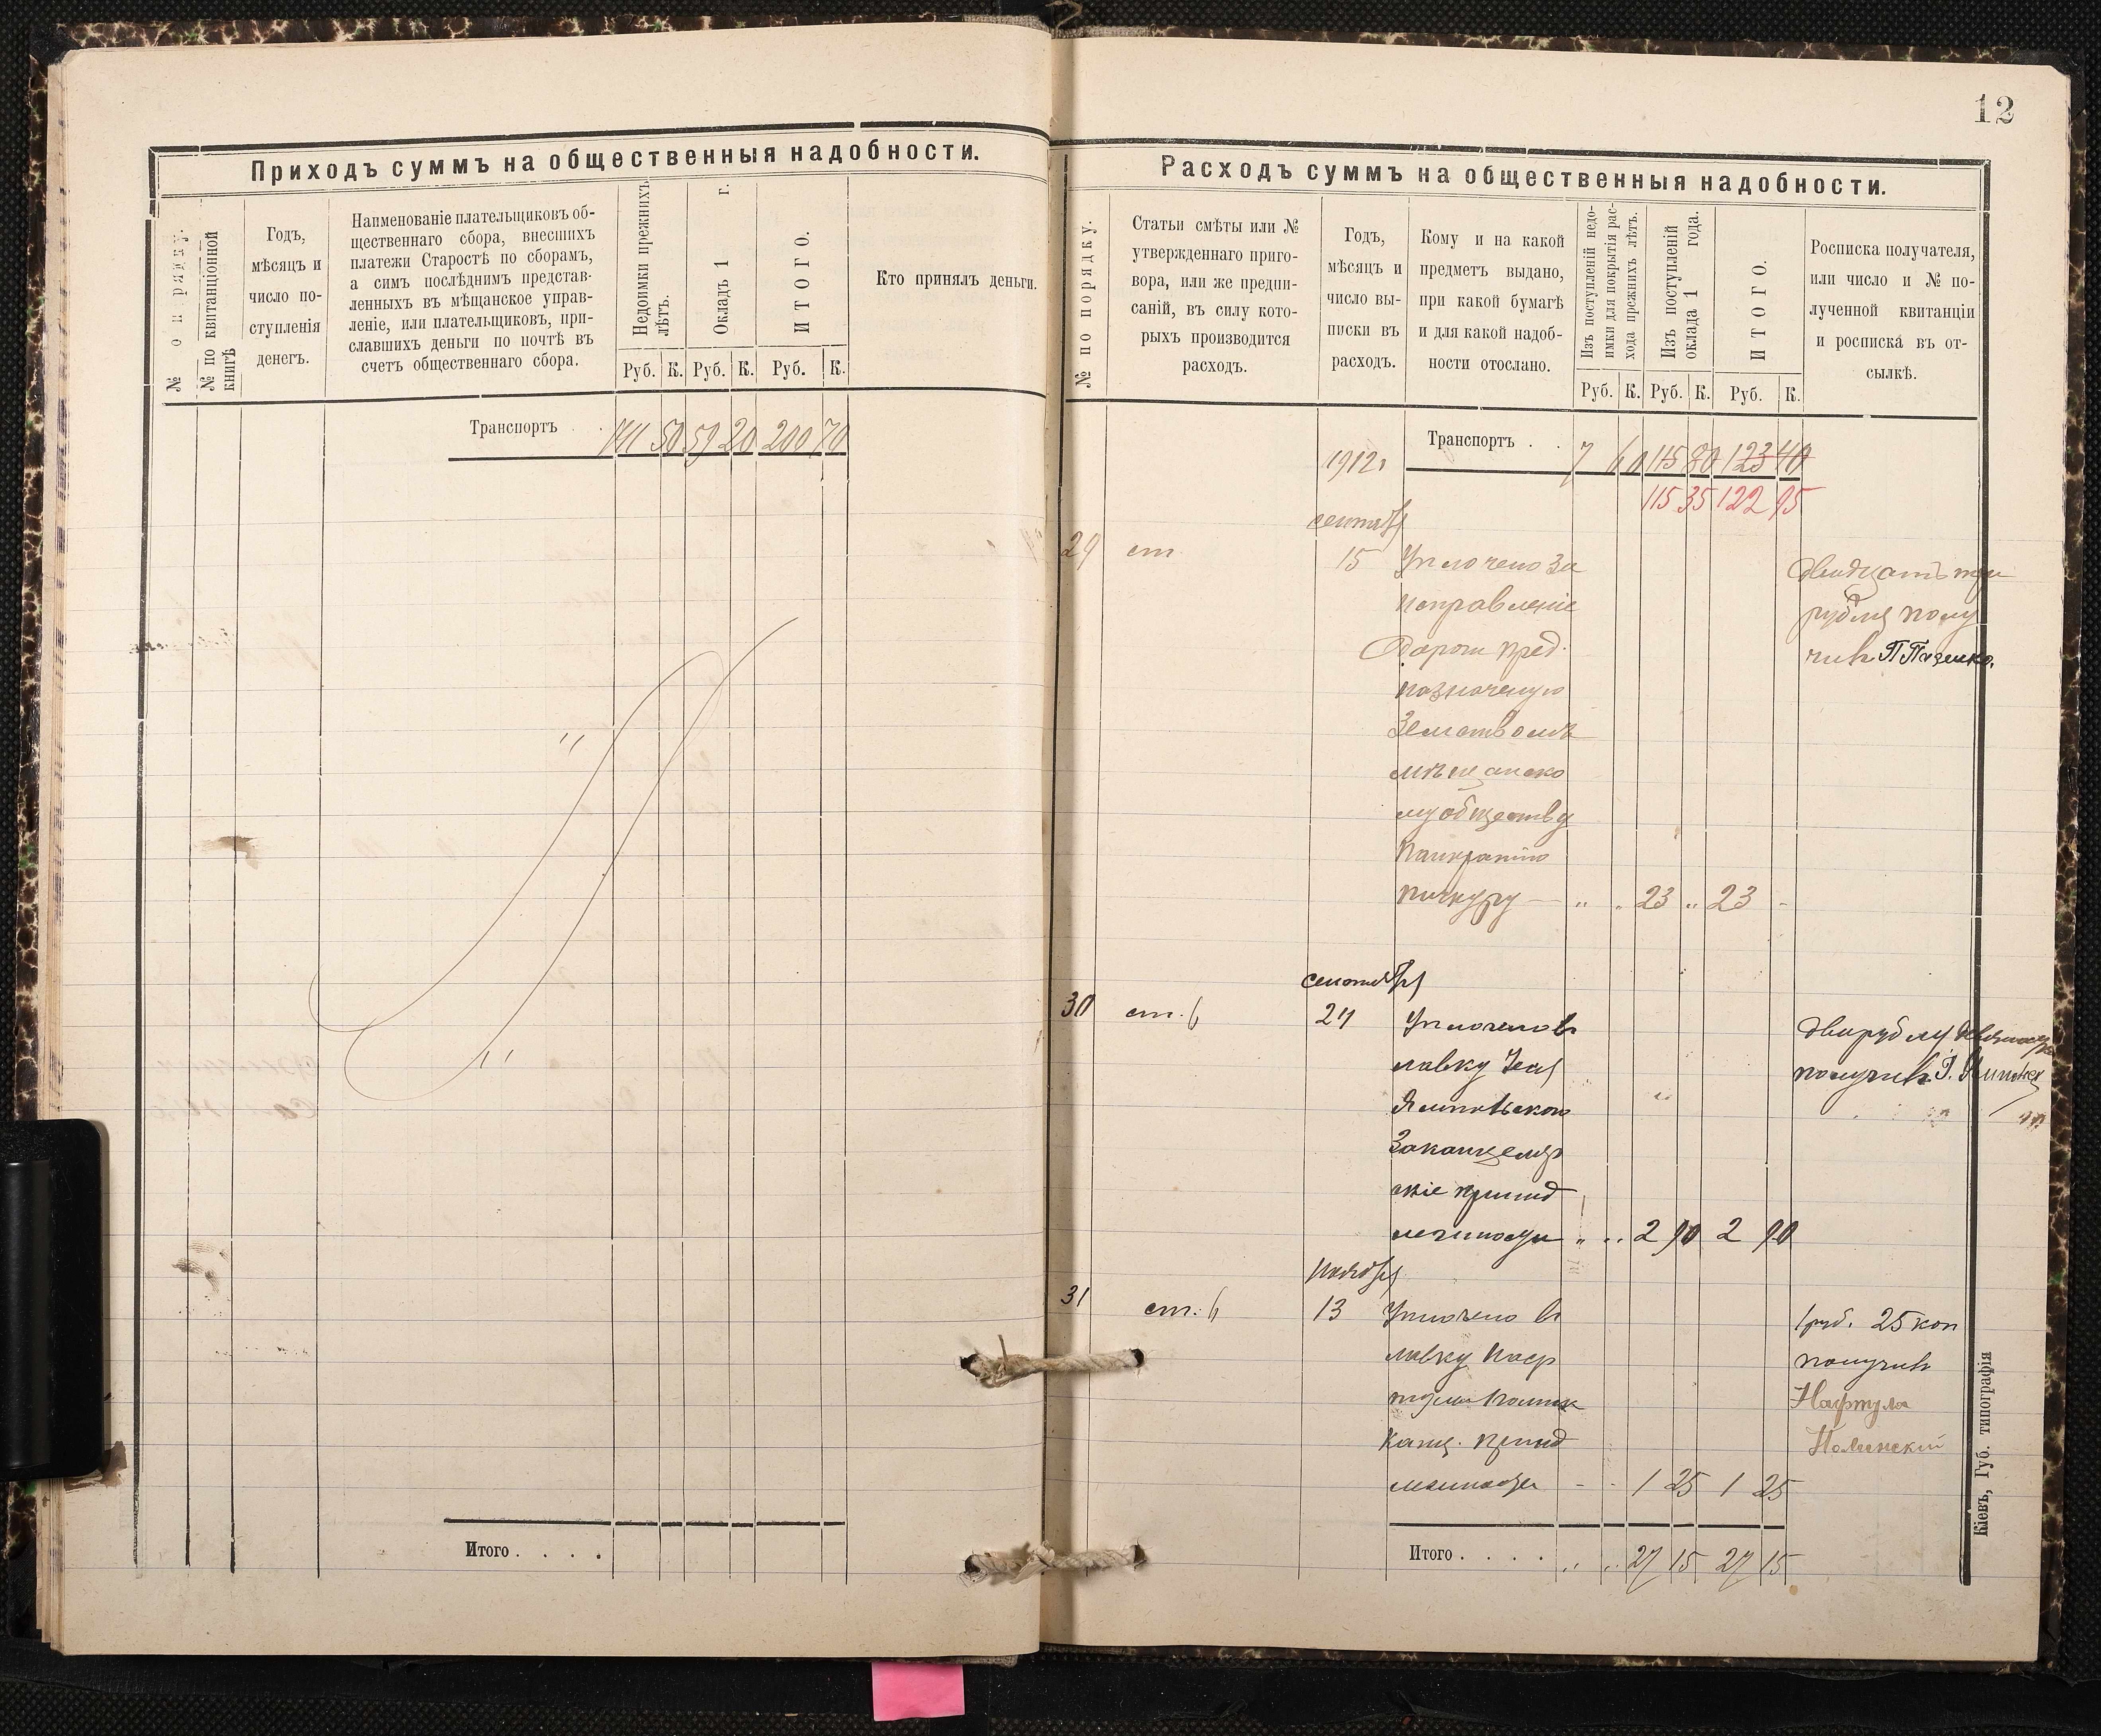 12
Приходъ суммъ на общественныя надобности.
№ по рядку.
№ по квитанціонной
книгѣ
Годъ,
мѣсяцъ и
число по-
ступленія
денегъ.
Наименованіе плательщиковъ об-
щественнаго сбора, внесшихъ
платежи Старостѣ по сборамъ,
а симъ послѣднимъ представ-
ленныхъ въ мѣщанское управ-
леніе, или плательщиковъ, при-
славшихъ деньги по почтѣ въ
счетъ общественнаго сбора.
Недоимки прежнихъ
лѣтъ.
Окладъ 1 г.
ИТОГО.
Руб. К. Руб. К. Руб. К.
Кто принялъ деньги.
Транспортъ . 141 50 59 20 200 70
Итого . . . .
Расходъ суммъ на общественныя надобности.
№ по порядку.
Статьи смѣты или №
утвержденнаго приго-
вора, или же предпи-
саній, въ силу кото-
рыхъ производится
расходъ.
Годъ,
мѣсяцъ и
число вы-
писки въ
расходъ.
Кому и на какой
предметъ выдано,
при какой бумагѣ
и для какой надоб-
ности отослано.
Изъ поступленій недо-
имки для покрытія рас-
хода прежнихъ лѣтъ.
Изъ поступленій
оклада 1 года.
ИТОГО.
Руб. К. Руб. К. Руб. К.
Росписка получателя,
или число и № по-
лученной квитанціи
и росписка въ от-
сылкѣ.
Транспортъ . . 7 60 115 80 123 40
1912г
115 35 122 95
сентябр
29 ст 15 Уплочено за
исправленіе
Дороги пред-
назначеную
Земствомъ
мѣщанско
му обществу
Панкратію
Почкуру — „ „ 23 „ 23 -
Двадцать три
рубля полу
чилъ
сентябр
30 ст. 6 24 Уплочено въ
лавку
за канцеляр
скіе принад
лежности „ „ 2 90 2 90
два рубля
получилъ
ноябр
31 ст. 6 13 Уплочено въ
лавку
Канц. принад
лежности - - 1 25 1 25
1 руб. 25 коп
получилъ
Нафтула
Итого . . . . „ „ 27 15 27 15
Кіевъ, Губ. типографія